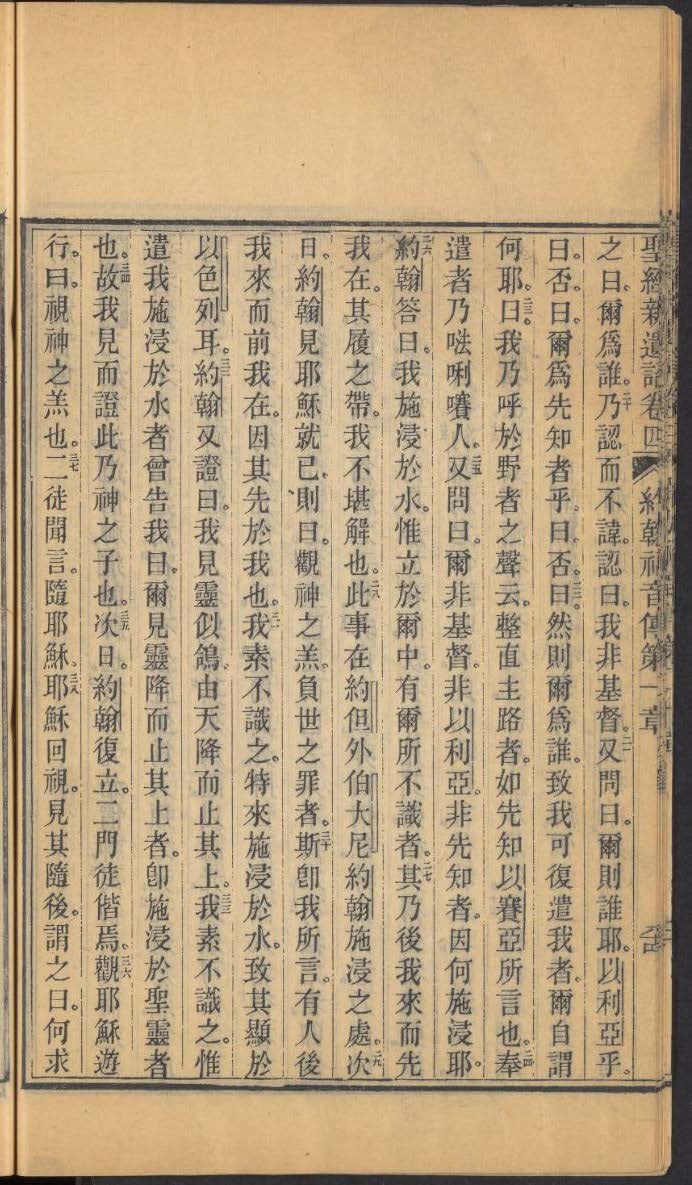 聖經新遺詔卷四 約翰福音傳第一章
之曰、爾爲誰。二十乃認而不諱。認曰、我非基督。二一又問曰。爾則誰耶。以利亞乎。
曰。否。曰。爾爲先知者乎。曰。否。二二曰。然則爾爲誰。致我可復遣我者。爾自謂
何耶。二三曰。我乃呼於野者之聲云。整直主路者。如先知以賽亞所言也。二四奉
遣者乃𠵽唎㘔人。二五又問曰。爾非基督。非以利亞。非先知者。因何施浸耶。
二六約翰答曰。我施浸於水。惟立於爾中。有爾所不識者。二七其乃後我來而先
我在。其履之帶。我不堪解也。二八此事在約但外伯大尼約翰施浸之處。二九次
日。約翰見耶穌就已、則曰。觀神之羔。負世之罪者。三十斯卽我所言。有人後
我來而前我在。因其先於我也。三一我素不識之。特來施浸於水。致其顯於
以色列耳。三二約翰又證曰。我見靈似鴿。由天降而止其上。三三我素不識之。惟
遣我施浸於水者曾告我曰。爾見靈降而止其上者。卽施浸於聖靈者
也。三四故我見而證此乃神之子也。三五次日。約翰復立。二門徒偕焉。三六觀耶穌遊
行。曰。視神之羔也。三七二徒聞言。隨耶穌。三八耶穌回視。見其隨後。謂之曰。何求